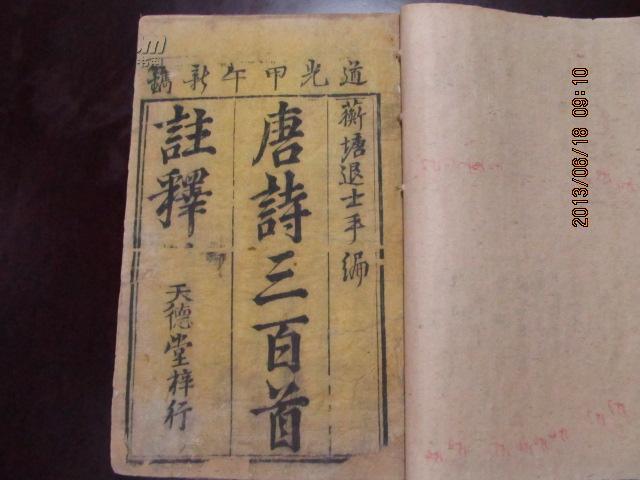 道光甲午新鐫
蘅塘退士手編
唐詩三百首
註釋
天德堂梓行
2013/06/18 09:10